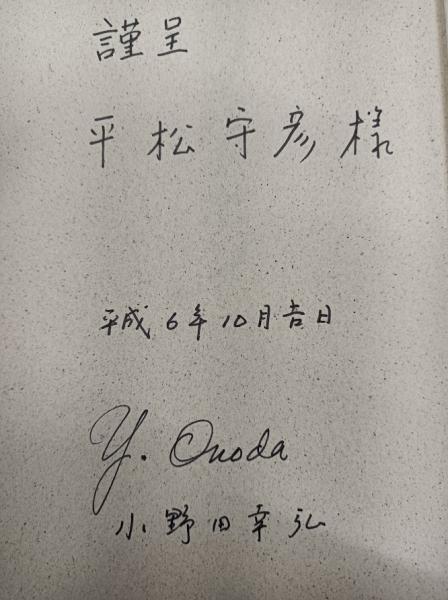 謹呈
平松守彦様
平成6年10月吉日
Y. Onoda
小野田幸弘